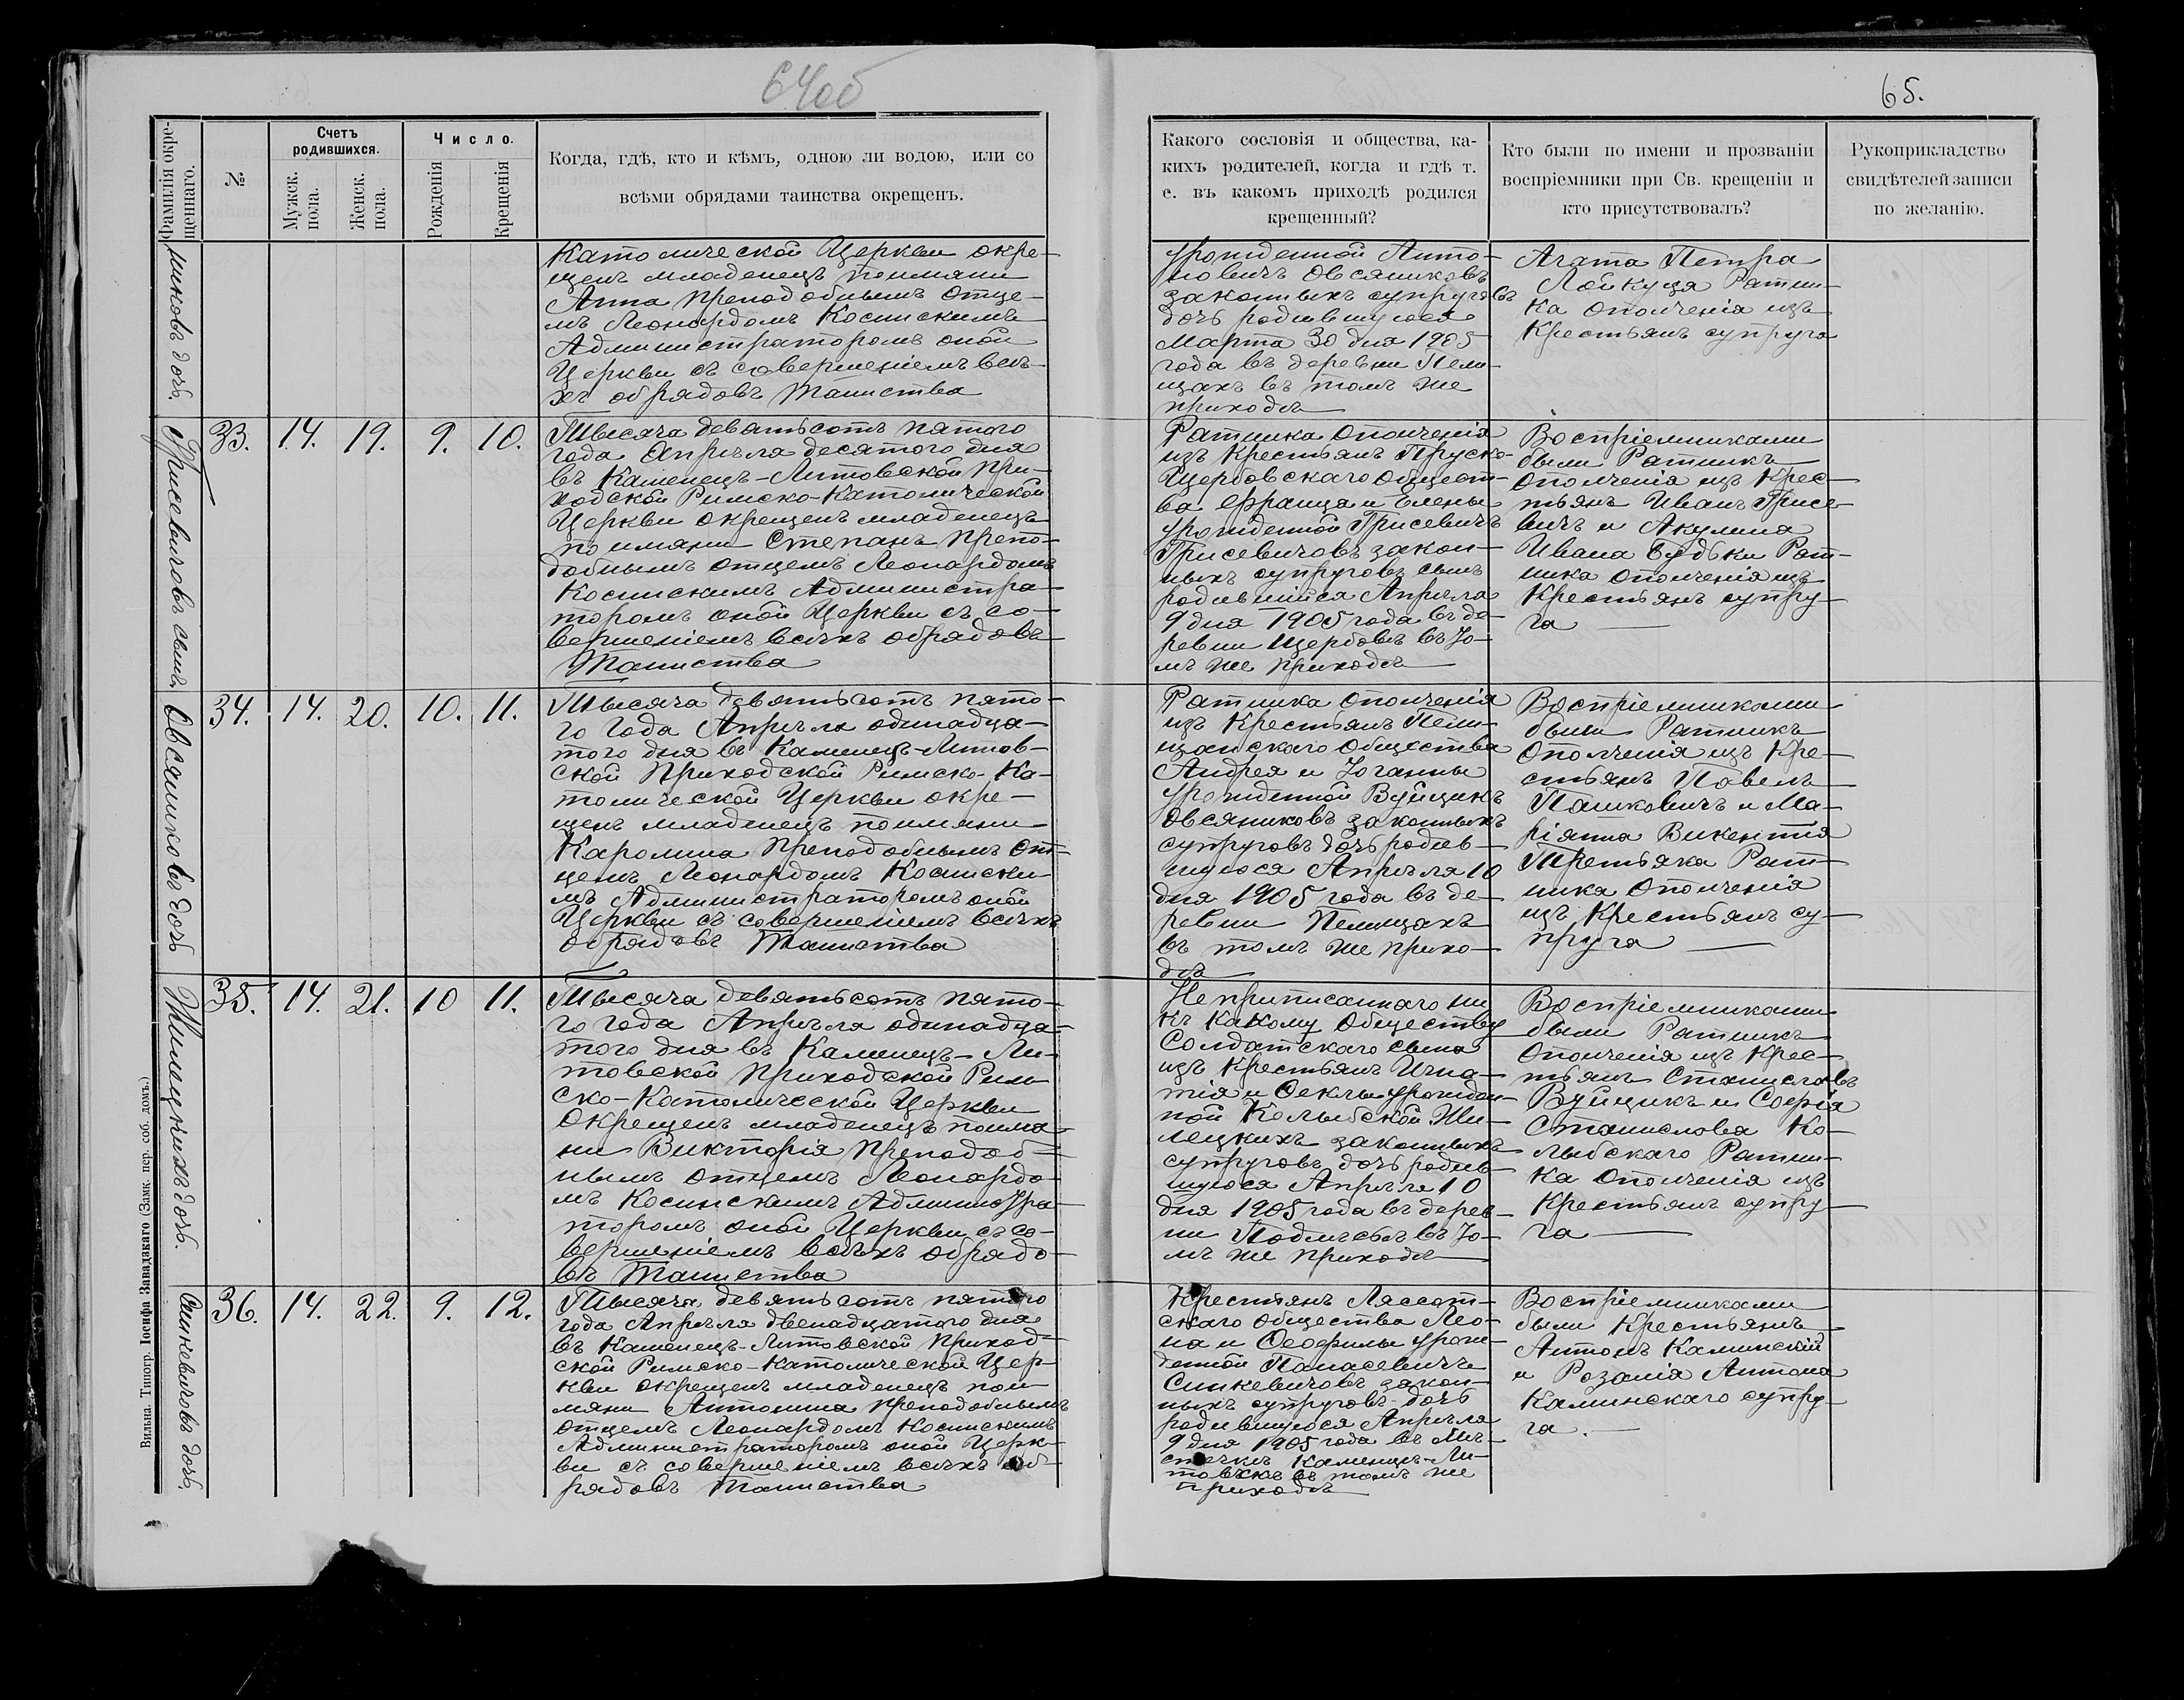 64об
65.
Фамилія окрещаннаго.
№
Счетъ родившихся.
Мужск. пола.
Женск. пола.
Число.
Рожденія
Крещенія
Когда, гдѣ, кто и кѣмъ, одною ли водою, или со
всѣми обрядами таинства окрещенъ.
Какого сословія и общества, ка-
кихъ родителей, когда и гдѣ т.
е. въ какомъ приходѣ родился
крещенный?
Кто были по имени и прозваніи
воспріемники при Св. крещеніи и
кто присутствовалъ?
Рукоприкладство
свидѣтелей записи
по желанію.
никовъ дочь.
Католической Церкви окре-
щенъ младенецъ поимяни
Анна преподобнымъ Отце-
мъ Леонардомъ Косинскимъ
Администраторомъ оной
Церкви съ совершеніемъ всѣ-
хъ обрядовъ Таинства
урожденной Анто-
новичъ Овсяниковъ
законныхъ супруговъ
дочь родившуюся
Марта 30 дня 1905
года въ деревни Пели-
щахъ въ томъ же
приходѣ
Агата Петра
Лойкуця Ратни-
ка Ополченія изъ
Крестьянъ супруга
Грисевичовъ сынъ.
33. 14. 19. 9. 10.
Тысяча девятьсотъ пятого
года Апрѣля десятого дня
въ Каменецъ-Литовской при-
ходской Римско-Католической
Церкви окрещенъ младенецъ
по имяни Степанъ препо-
добнымъ отцемъ Леонардомъ
Косинскимъ Администра-
торомъ оной Церкви съ со-
вершеніемъ всѣхъ обрядовъ
Таинства
Ратника Ополченія
изъ Крестьянъ Пруско-
Щербовскаго Общест-
ва Франца и Елены
урожденной Грисевичъ
Грисевичовъ закон-
ныхъ супруговъ сынъ
родившійся Апрѣля
9 дня 1905 года въ де-
ревни Щербовѣ въ то-
мъ же приходѣ
Воспріемниками
были Ратникъ
Ополченія изъ Крес-
тьянъ Иванъ Грисе-
вичъ и Акулина
Ивана Будьки Рат-
ника Ополченія изъ
Крестьянъ супру-
га
Овсяниковъ дочь
34. 14. 20. 10. 11.
Тысяча девятьсотъ пято-
го года Апрѣля одинадца-
того дня въ Каменецъ-Литов-
ской Приходской Римско-Ка-
толической Церкви окре-
щенъ младенецъ поимяни
Каролина Преподобнымъ От-
цемъ Леонардомъ Косински-
мъ Администраторомъ оной
Церкви съ совершеніемъ всѣхъ
обрядовъ Таинства
Ратника Ополченія
изъ Крестьянъ Пели-
щанскаго Общества
Андрея и Іоганны
урожденной Вуйцикъ
Овсяниковъ законныхъ
супруговъ дочь родив-
шуюся Апрѣля 10
дня 1905 года въ де-
ревни Пелищахъ
въ томъ же прихо-
дѣ
Воспріемниками
были Ратникъ
Ополченія изъ Кре-
стьянъ Павелъ
Пашковичъ и Ма-
ріянна Викентія
Третьяка Рат-
ника Ополченія
изъ Крестьянъ су-
пруга
Жилецкихъ дочь.
35. 14. 21. 10 11.
Тысяча девятьсотъ пято-
го года Апрѣля одинадца-
того дня въ Каменецъ-Ли-
товской Приходской Рим-
ско-Католической Церкви
Окрещенъ младенецъ поимя-
ни Викторія Преподоб-
нымъ отцемъ Леонардо-
мъ Косинскимъ Администра-
торомъ оной Церкви съ со-
вершеніемъ всѣхъ обрядо-
въ Таинства
Неприписаннаго ни
къ какому Обществу
Солдатскаго сына
изъ Крестьянъ Игна-
тія и Ѳеклы урожден-
ной Колыбской Жи-
лецкихъ законныхъ
супруговъ дочь родив-
шуюся Апрѣля 10
дня 1905 года въ дерев-
ни Подлѣсьѣ въ то-
мъ же приходѣ
Воспріемниками
были Ратникъ
Ополченія изъ Крес-
тьянъ Станиславъ
Вуйцикъ и Софія
Станислава Ко-
лыбскаго Ратни-
ка Ополченія изъ
Крестьянъ супру-
га
Синкевичовъ дочь.
36. 14. 22. 9. 12.
Тысяча девятьсотъ пятого
года Апрѣля двенадцатого дня
въ Каменецъ-Литовской Приход-
ской Римско-Католической Цер-
кви окрещенъ младенецъ пои-
мяни Антонина преподобнымъ
отцемъ Леонардомъ Косинскимъ
Администраторомъ оной Церк-
ви съ совершеніемъ всѣхъ об-
рядовъ Таинства
Крестянъ Лясскот-
скаго общества Лео-
на и Ѳеофилы урож-
денной Панасевичъ
Синкевичовъ закон-
ныхъ супруговъ дочь
родившуюся Апрѣля
9 дня 1905 года въ мѣ-
стечкѣ Каменцѣ-Ли-
товскѣ въ томъ же
приходѣ
Воспріемниками
были Крестьянъ
Антонъ Каминскій
и Розалія Антона
Каминскаго супру-
га.
Вильна. Типогр. Іосифа Завадзкаго (Замк. пер. соб. домъ.)